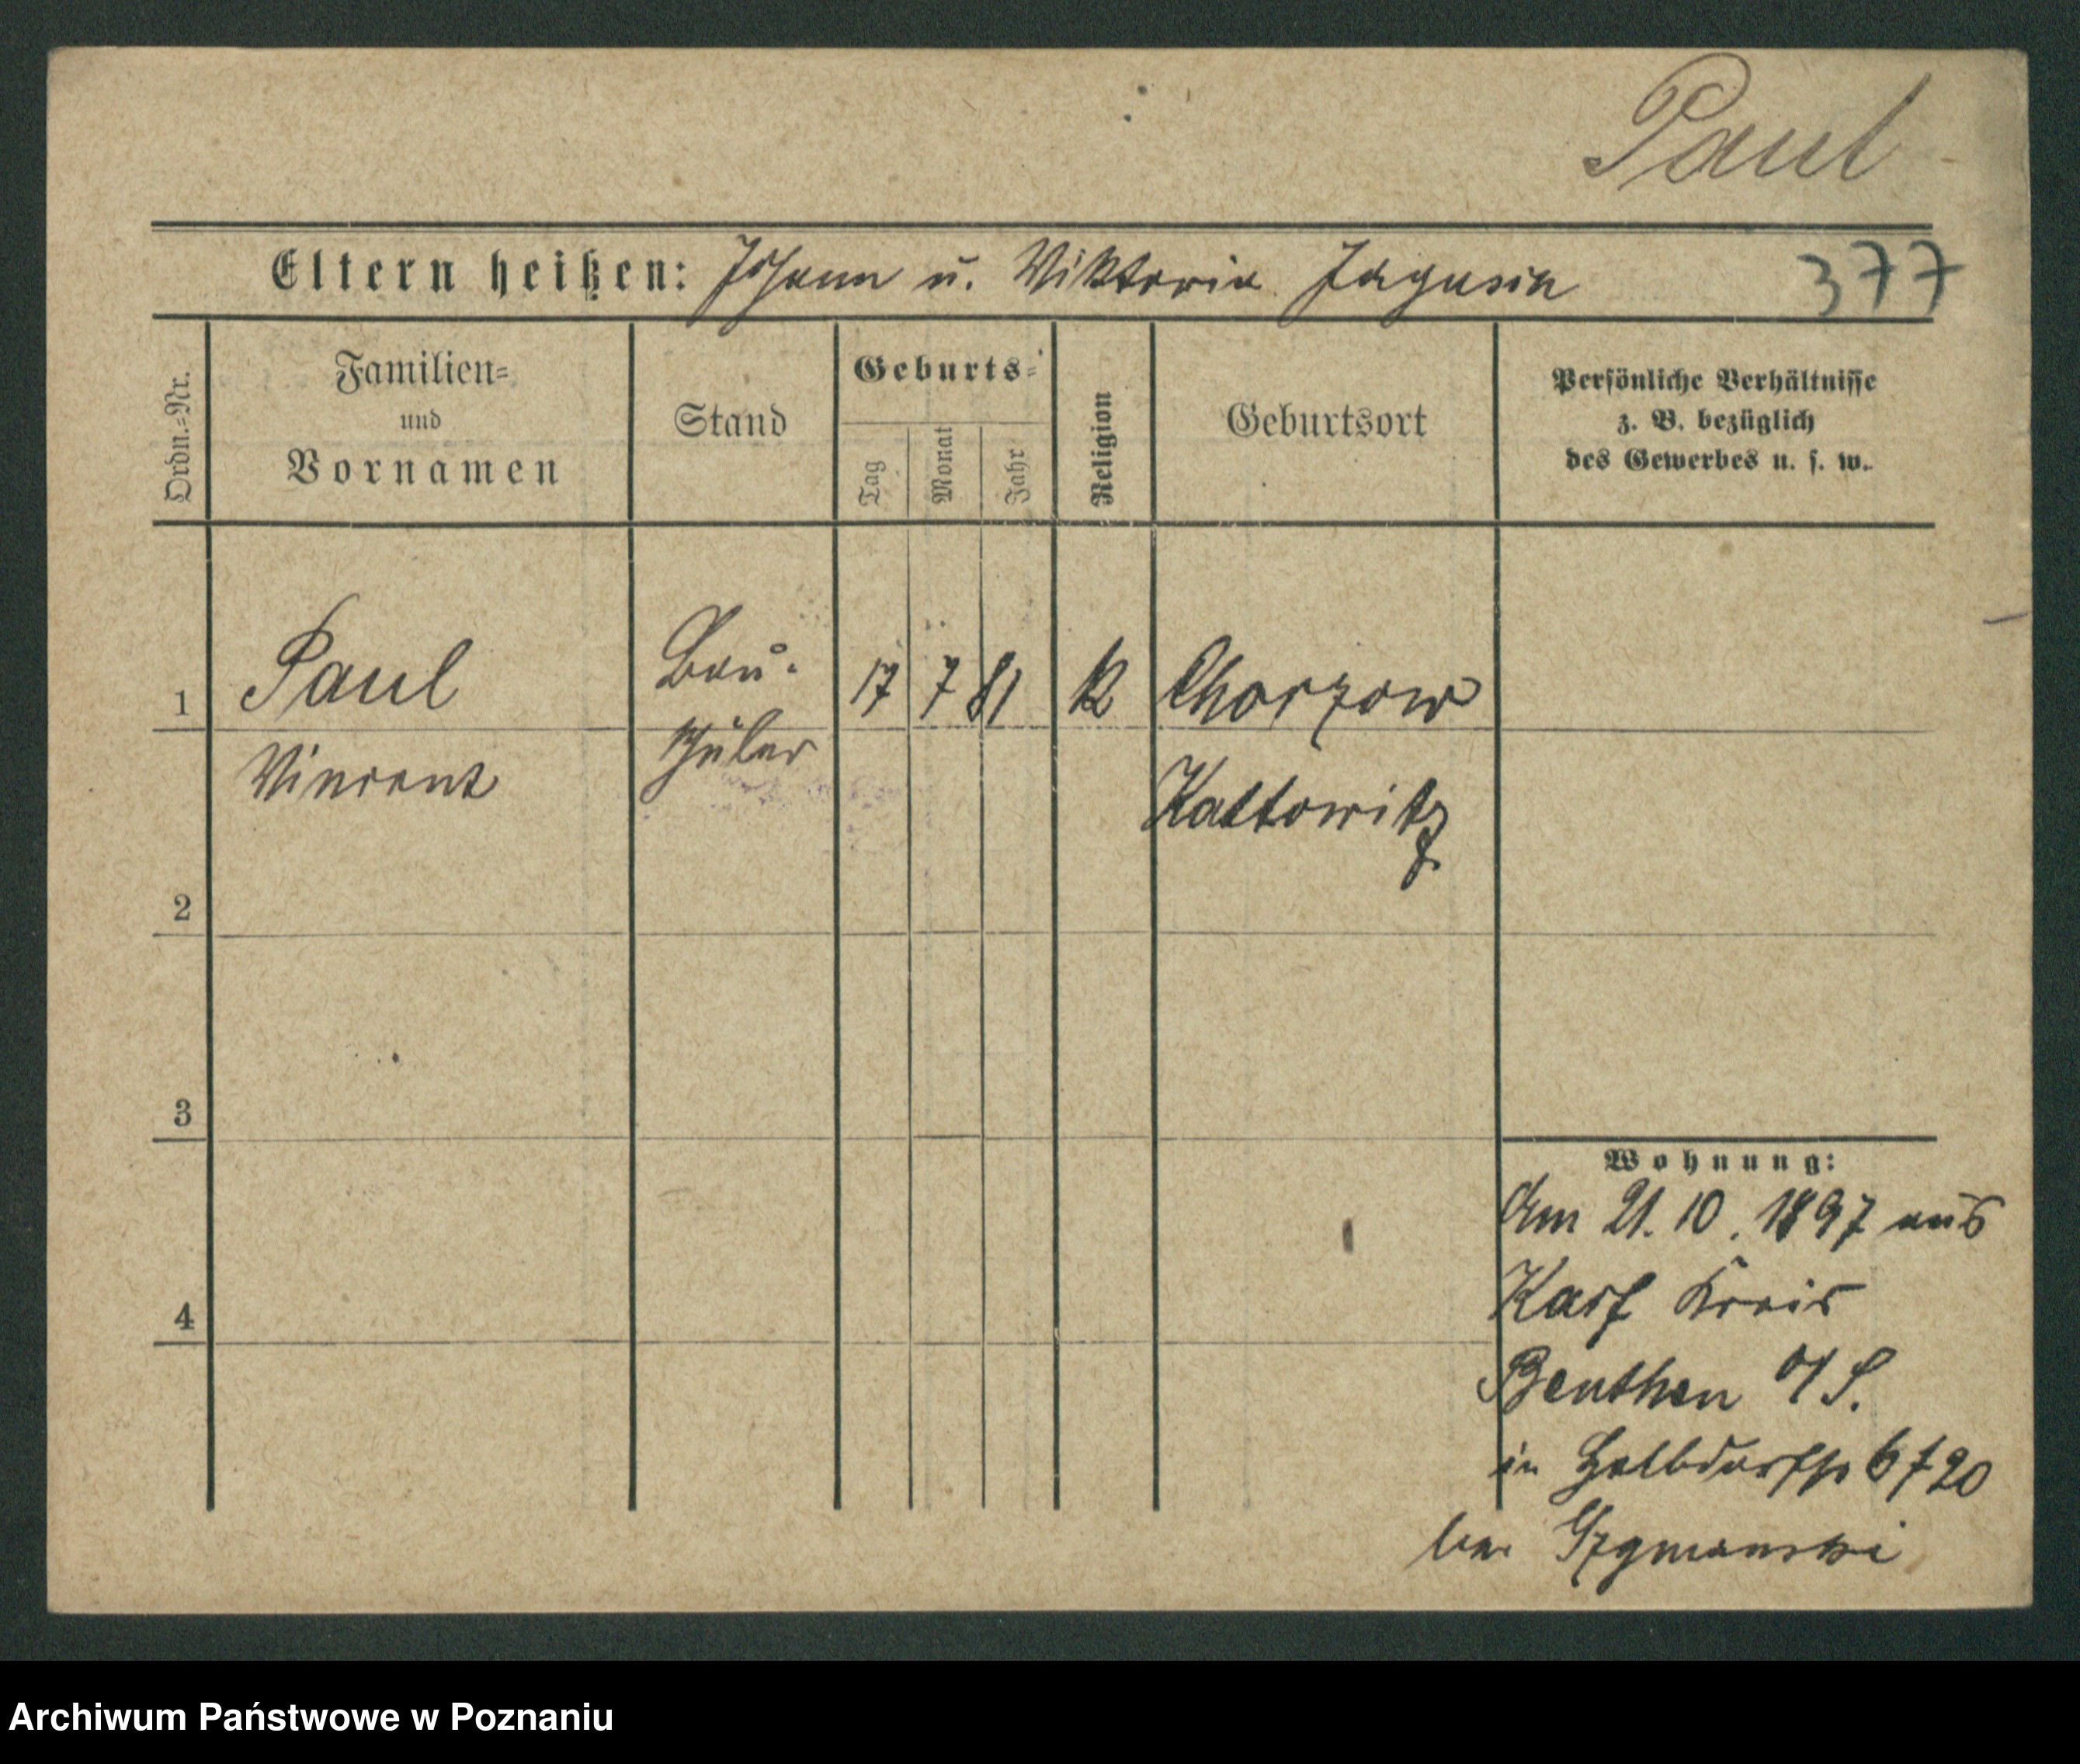 Paul
Eltern heißen: Johann u. Viktoria Jagusch
377
Ordn.-Nr.
Familien-
und
Vornamen
Stand
Geburts-
Tag
Monat
Jahr
Religion
Geburtsort
Persönliche Verhältnisse
z. B. bezüglich
des Gewerbes u. s. w.
1
Paul
Vincent
Bau-
schüler
17 7 81
K
Chorzow
Kattowitz
2
3
4
Wohnung:
Am 21. 10. 1897 aus
Karf Kreis
Beuthen O/S.
in Halbdorfstr
bei
Archiwum Państwowe w Poznaniu